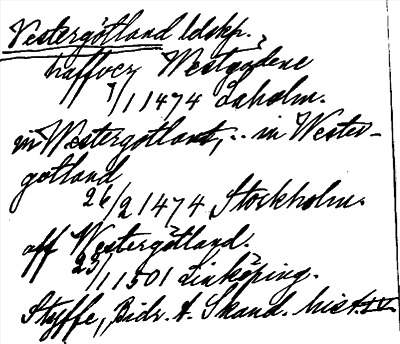 Vestergötland ldskp.
haffver Westgydene
7/1 1474 Laholm.
in Westergotland, .. in Wester-
gotland
26/2 1474 Stockholm.
aff Westergötland.
23/1 1501 Linköping.
Styffe, Bidr. t. Skand. hist. IV.